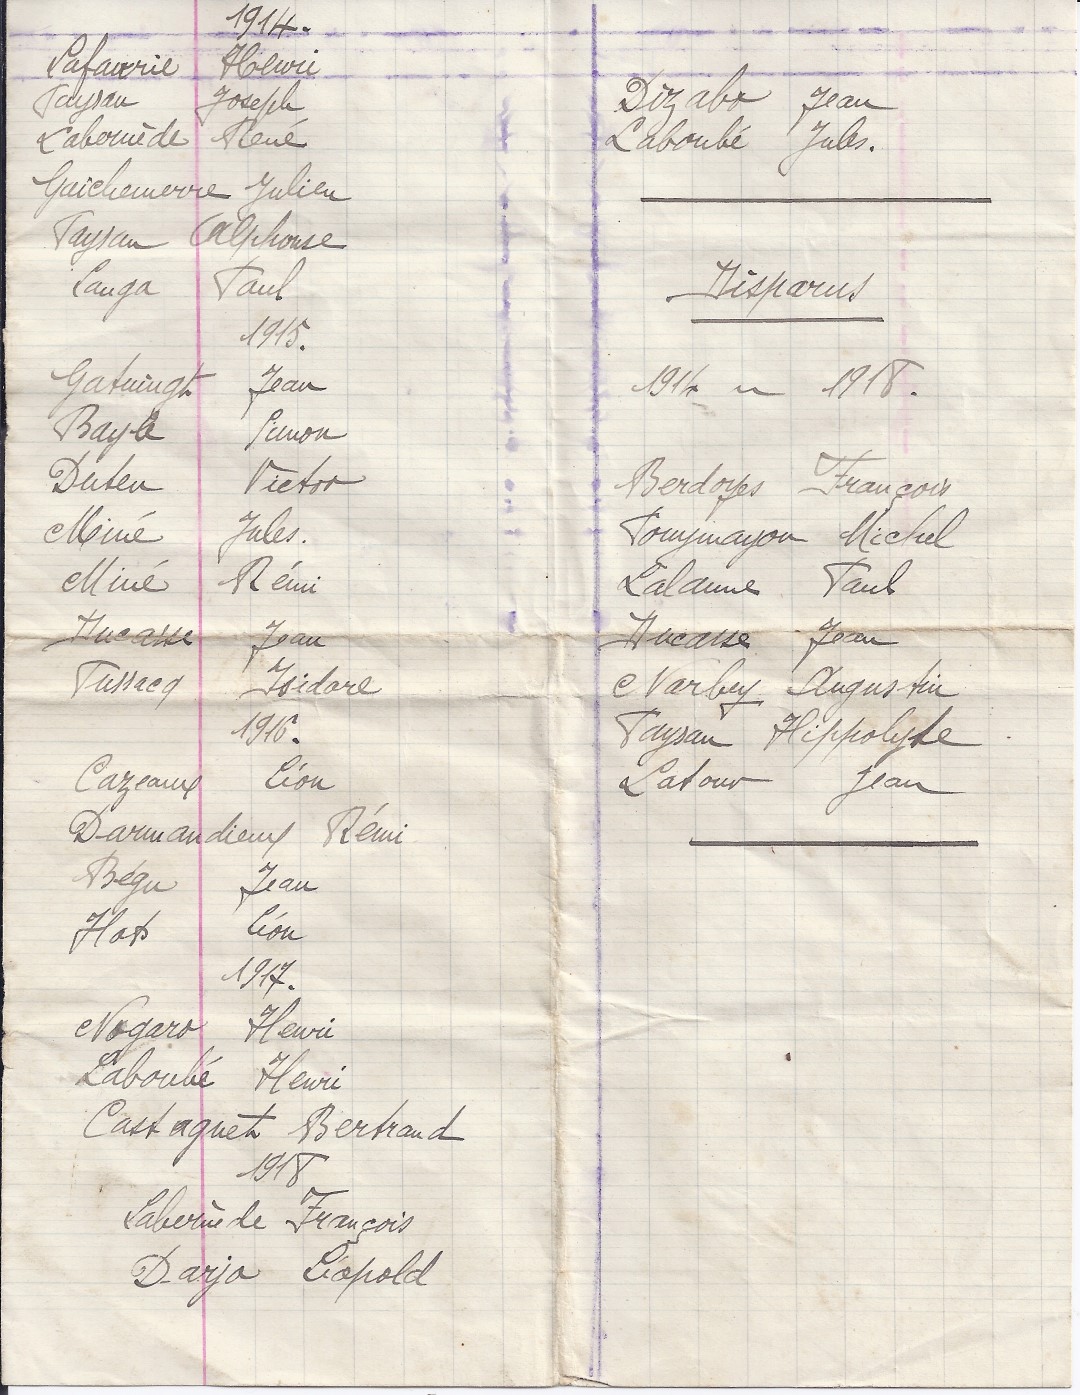 1914.
Lafaurie Henri
Paysan Joseph
Labernède René
Guichemerre Julien
Paysan Alphonse
Langa Paul
1915.
Gatuingt Jean
Bayle Simon
Duten Victor
Miné Jules.
Miné Rémi
Ducasse Jean
Tussacq Isidore
1916.
Cazeaux Léon
Darmandieux Rémi
Bégu Jean
Hots Léon
1917.
Nogaro Henri
Laboubé Henri
Castagnet Bertrand
1918
Labernède François
Darjo Léopold
Dizabo Jean
Laboubé Jules.
Disparus
1914 ~ 1918.
Berdoyes François
Michel
Lalanne Paul
Ducasse Jean
Narbey Augustin
Paysan Hippolyte
Latour Jean